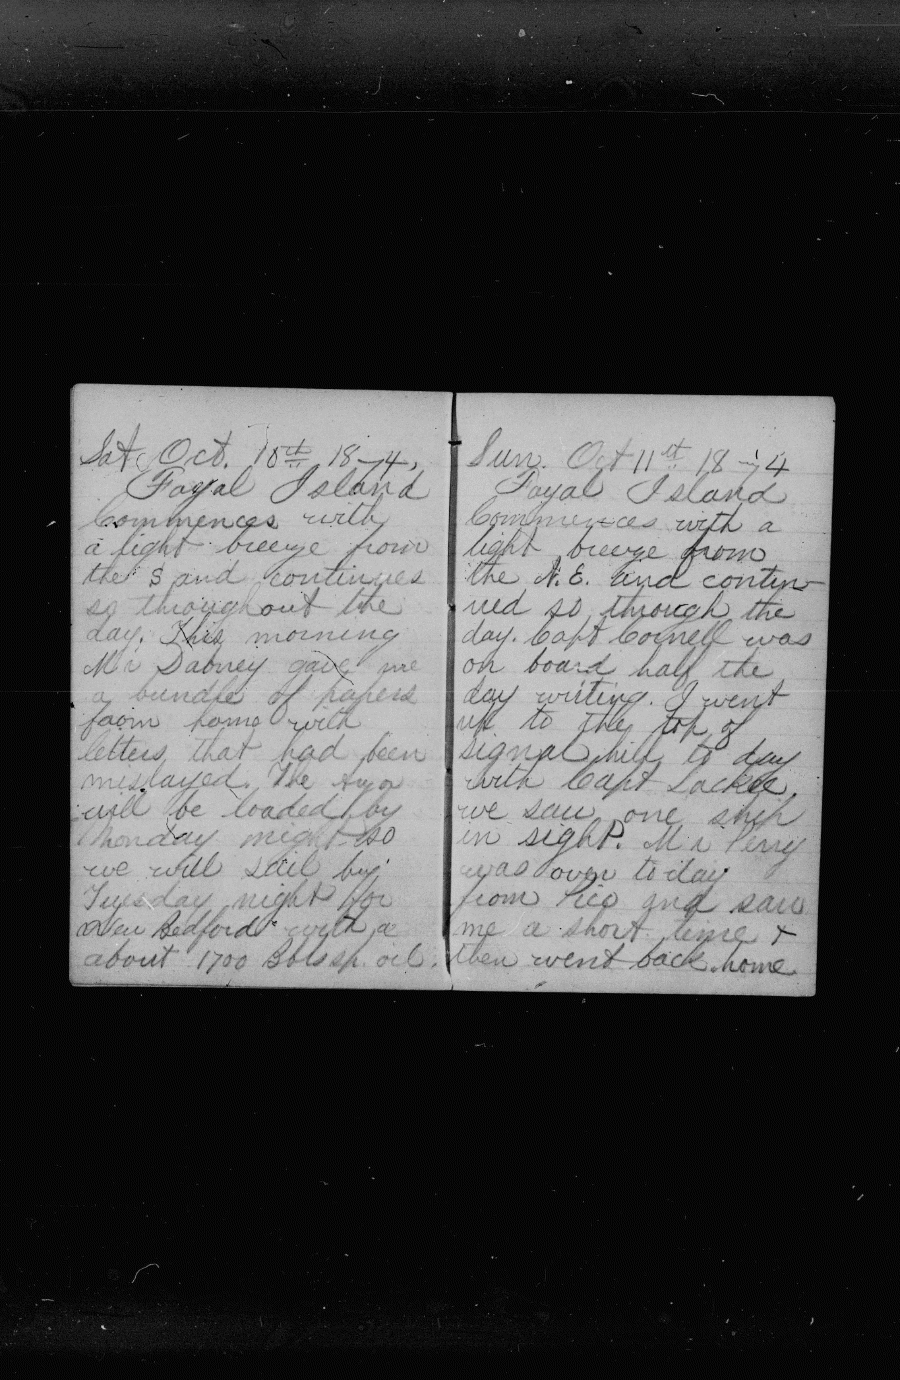 Sat. Oct. 10th 1874,
Fayal Island
Commences with
a light breeze from
the S and continues
so throughout the
day. This morning
Mr Dabney gave me
a bundle of papers
from home with
letters that had been
mislayed. The
will be loaded by
Monday night so
we will sail by
Tuesday night for
New Bedford with a
about 1700 Bbls sp. oil.
Sun. Oct 11st 1874
Fayal Island
Commences with a
light breeze from
the N.E. and contin-
ued so through the
day. Capt Cornell was
on board half the
day writing. I went
up to the top of
signal hill to day
with Capt
we saw one ship
in sight. Mr Perry
was over to day
from Pico and saw
me a short time +
then went back home